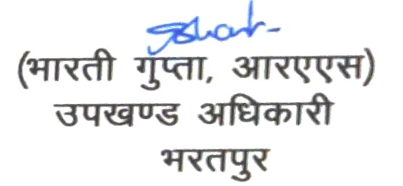 (भारती गुप्ता, आरएएस)
उपखण्ड अधिकारी
भरतपुर